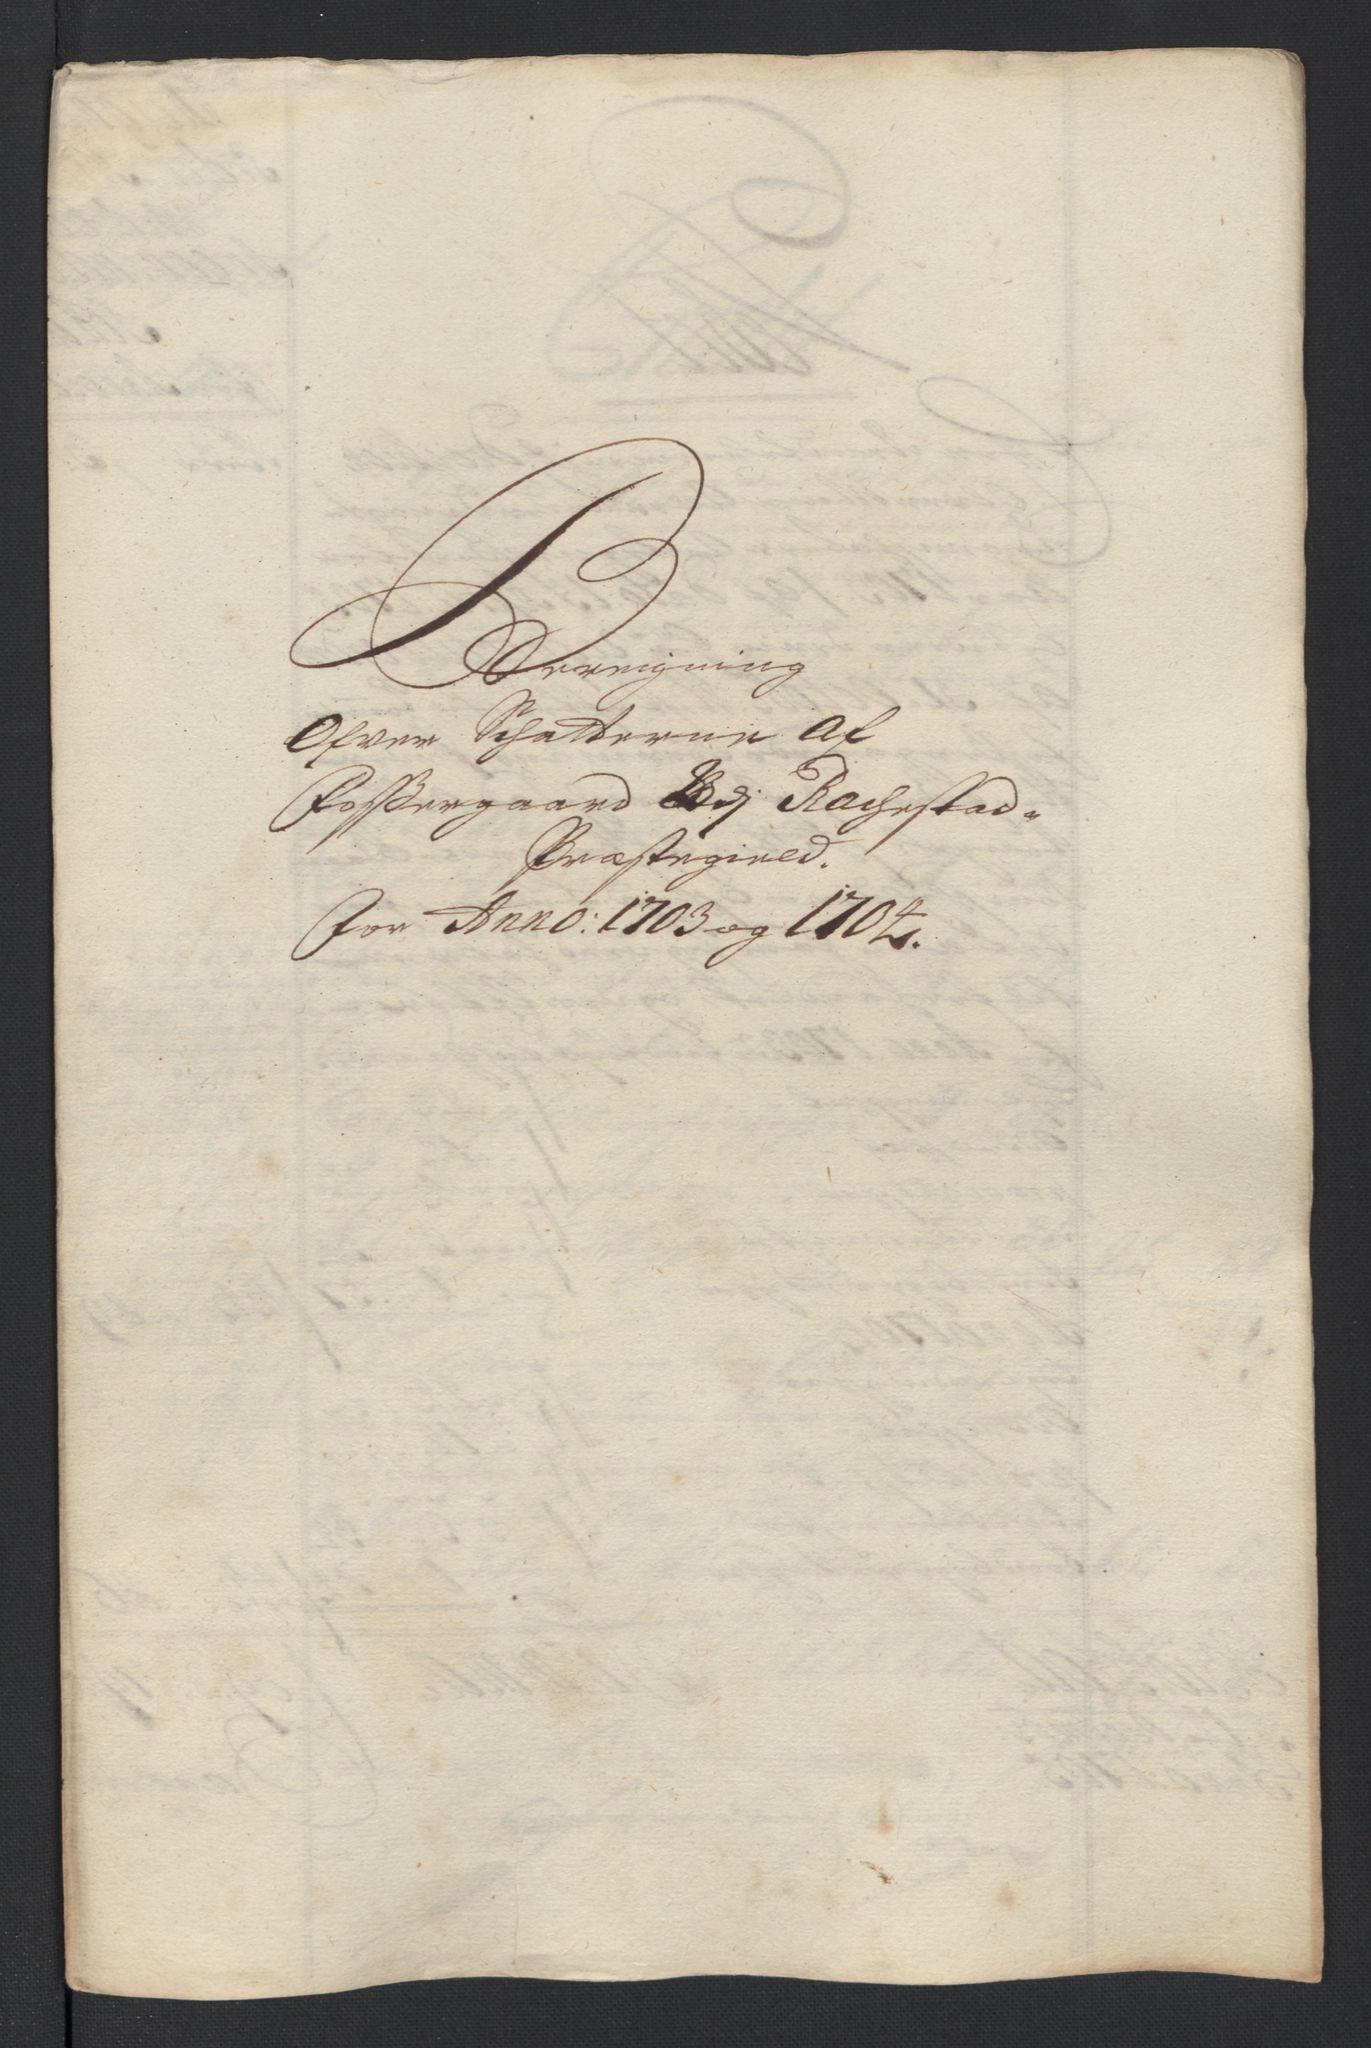 Bereigning
Ofver Schatterne af
Fossergaard Udj Rachestad-
Præstegield.
for Anno: 1703 og 1704.